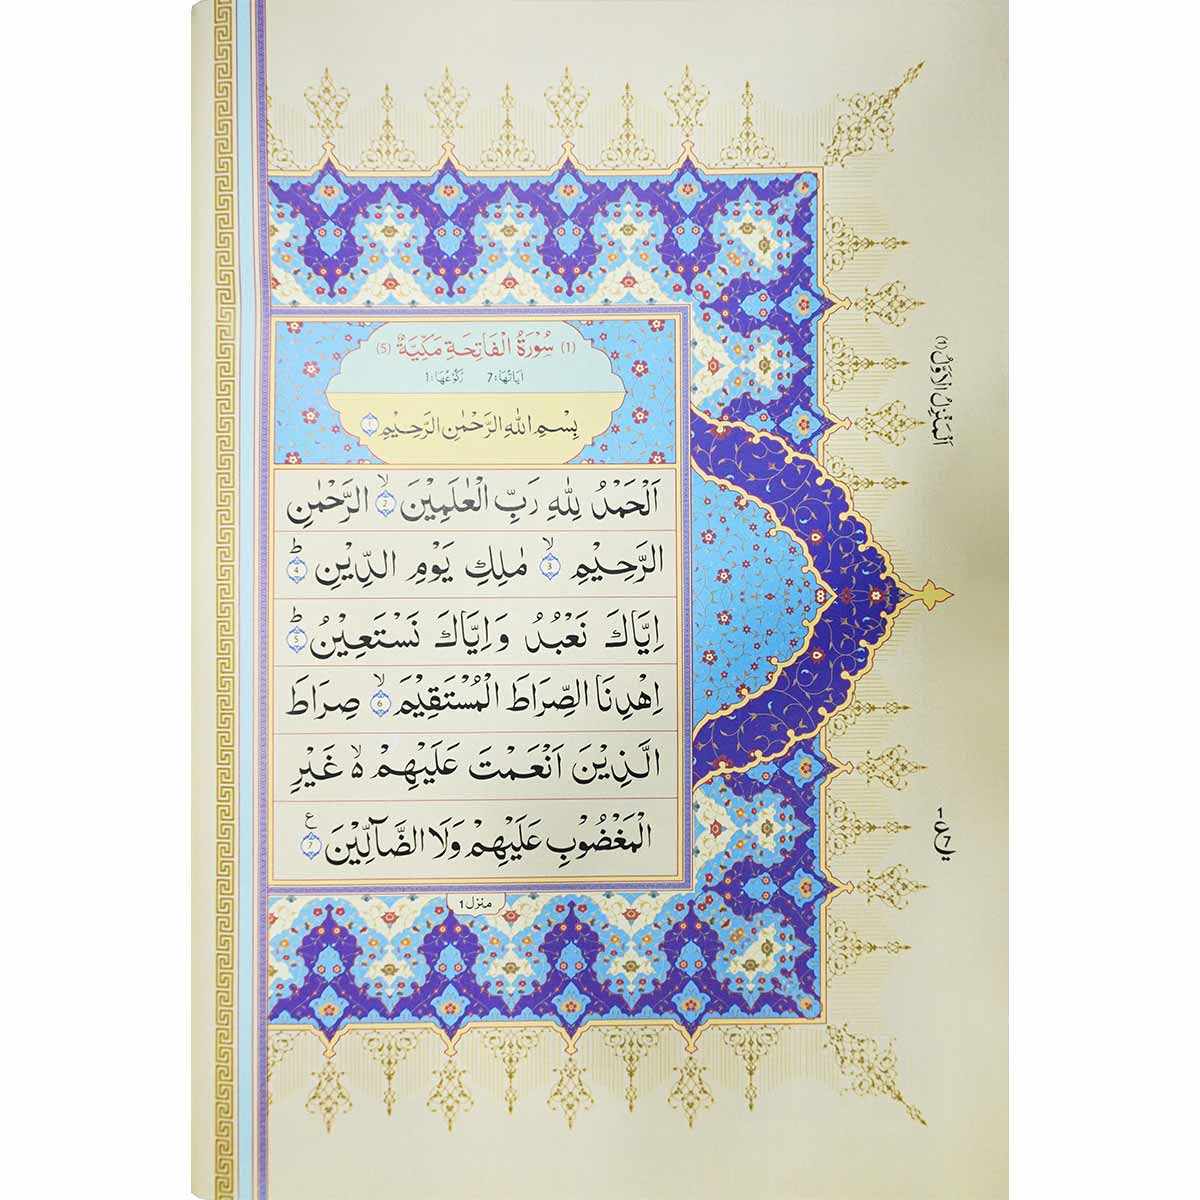 (1) سُوْرَةُ الْفَاتِحَةِ مَكِّيَّةٌ (5)
اٰيَاتُهَا:7 رُكُوْعُهَا:1
بِسْمِ اللّٰهِ الرَّحْمٰنِ الرَّحِيْمِ ﴿1﴾
اَلْحَمْدُ لِلّٰهِ رَبِّ الْعٰلَمِيْنَ ۙ﴿2﴾ الرَّحْمٰنِ
الرَّحِيْمِ ۙ﴿3﴾ مٰلِكِ يَوْمِ الدِّيْنِ ؕ﴿4﴾
اِيَّاكَ نَعْبُدُ وَ اِيَّاكَ نَسْتَعِيْنُ ؕ﴿5﴾
اِهْدِنَا الصِّرَاطَ الْمُسْتَقِيْمَ ۙ﴿6﴾ صِرَاطَ
الَّذِيْنَ اَنْعَمْتَ عَلَيْهِمْ ۙ۬ غَيْرِ
الْمَغْضُوْبِ عَلَيْهِمْ وَلَا الضَّآلِّيْنَ ﴿7﴾ ع
منزل 1
اَلْمَنْزِلُ الْاَوَّلُ (1)